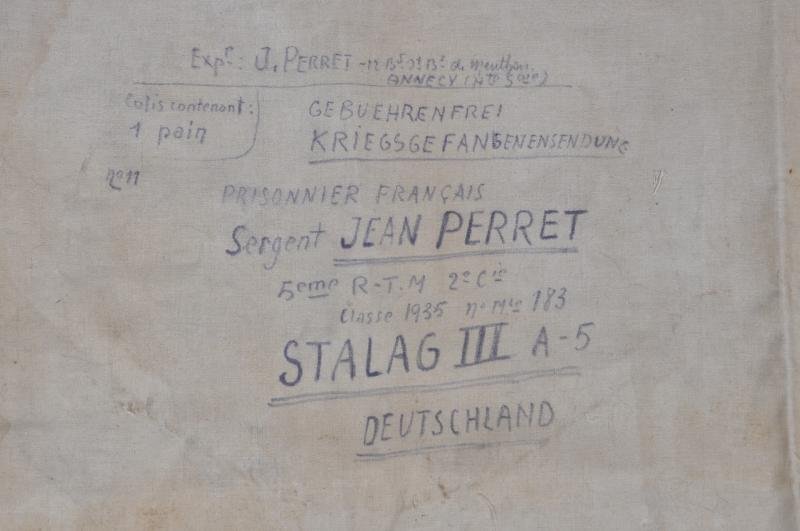 Expr: J. PERRET - 12 Bd St Bd de Menthon.
ANNECY (Hte Savoie)
Colis contenant :
1 pain
GEBUEHRENFREI
KRIEGSGEFANGENENSENDUNG
no 11
PRISONNIER FRANÇAIS
Sergent JEAN PERRET
5eme R-T.M 2e Cie
Classe 1935 no Mle 183
STALAG III A-5
DEUTSCHLAND